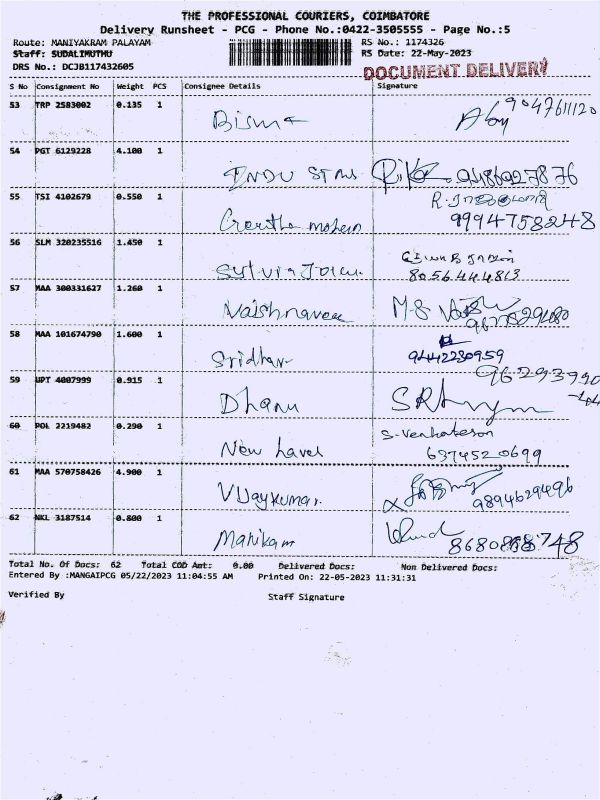 THE PROFESSIONAL COURIERS, COIMBATORE
Delivery Runsheet - PCG - Phone No.:0422-3505555 - Page No.:5
Route: MANIYAKRAM PALAYAM RS No.: 1174326
Staff: SUDALIMUTHU RS Date: 22-May-2023
DRS No.: DCJB117432605
DOCUMENT DELIVERY
S No Consignment No Weight PCS Consignee Details Signature
53 TRP 2583002 0.135 1 9047611120
Bisma
54 PGT 6129228 4.100 1
INDU
55 TSI 4102679 0.550 1
9994758248
56 SLM 320235516 1.450 1
8056444813
57 MAA 300331627 1.260 1
Vaishnavee M-S
58 MAA 101674790 1.600 1
Sridhar 9442230959
59 UPT 4007999 0.915 1
Dhanu
60 POL 2219482 0.290 1 S. Venkateson
New 6374520699
61 MAA 570758426 4.900 1
Vijaykumar 9894629496
62 NKL 3187514 0.800 1
Manikam
Total No. Of Docs: 62 Total COD Amt: 0.00 Delivered Docs: Non Delivered Docs:
Entered By :MANGAIPCG 05/22/2023 11:04:55 AM Printed On: 22-05-2023 11:31:31
Verified By Staff Signature